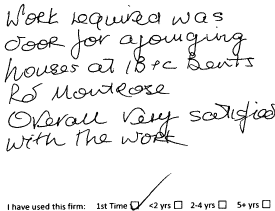 Work required was
door for ajoining
houses at 18+c Bents
Rd Montrose
Overall very satisfied
with the work
I have used this firm: 1st Time ☑ <2 yrs ☐ 2-4 yrs ☐ 5+ yrs ☐